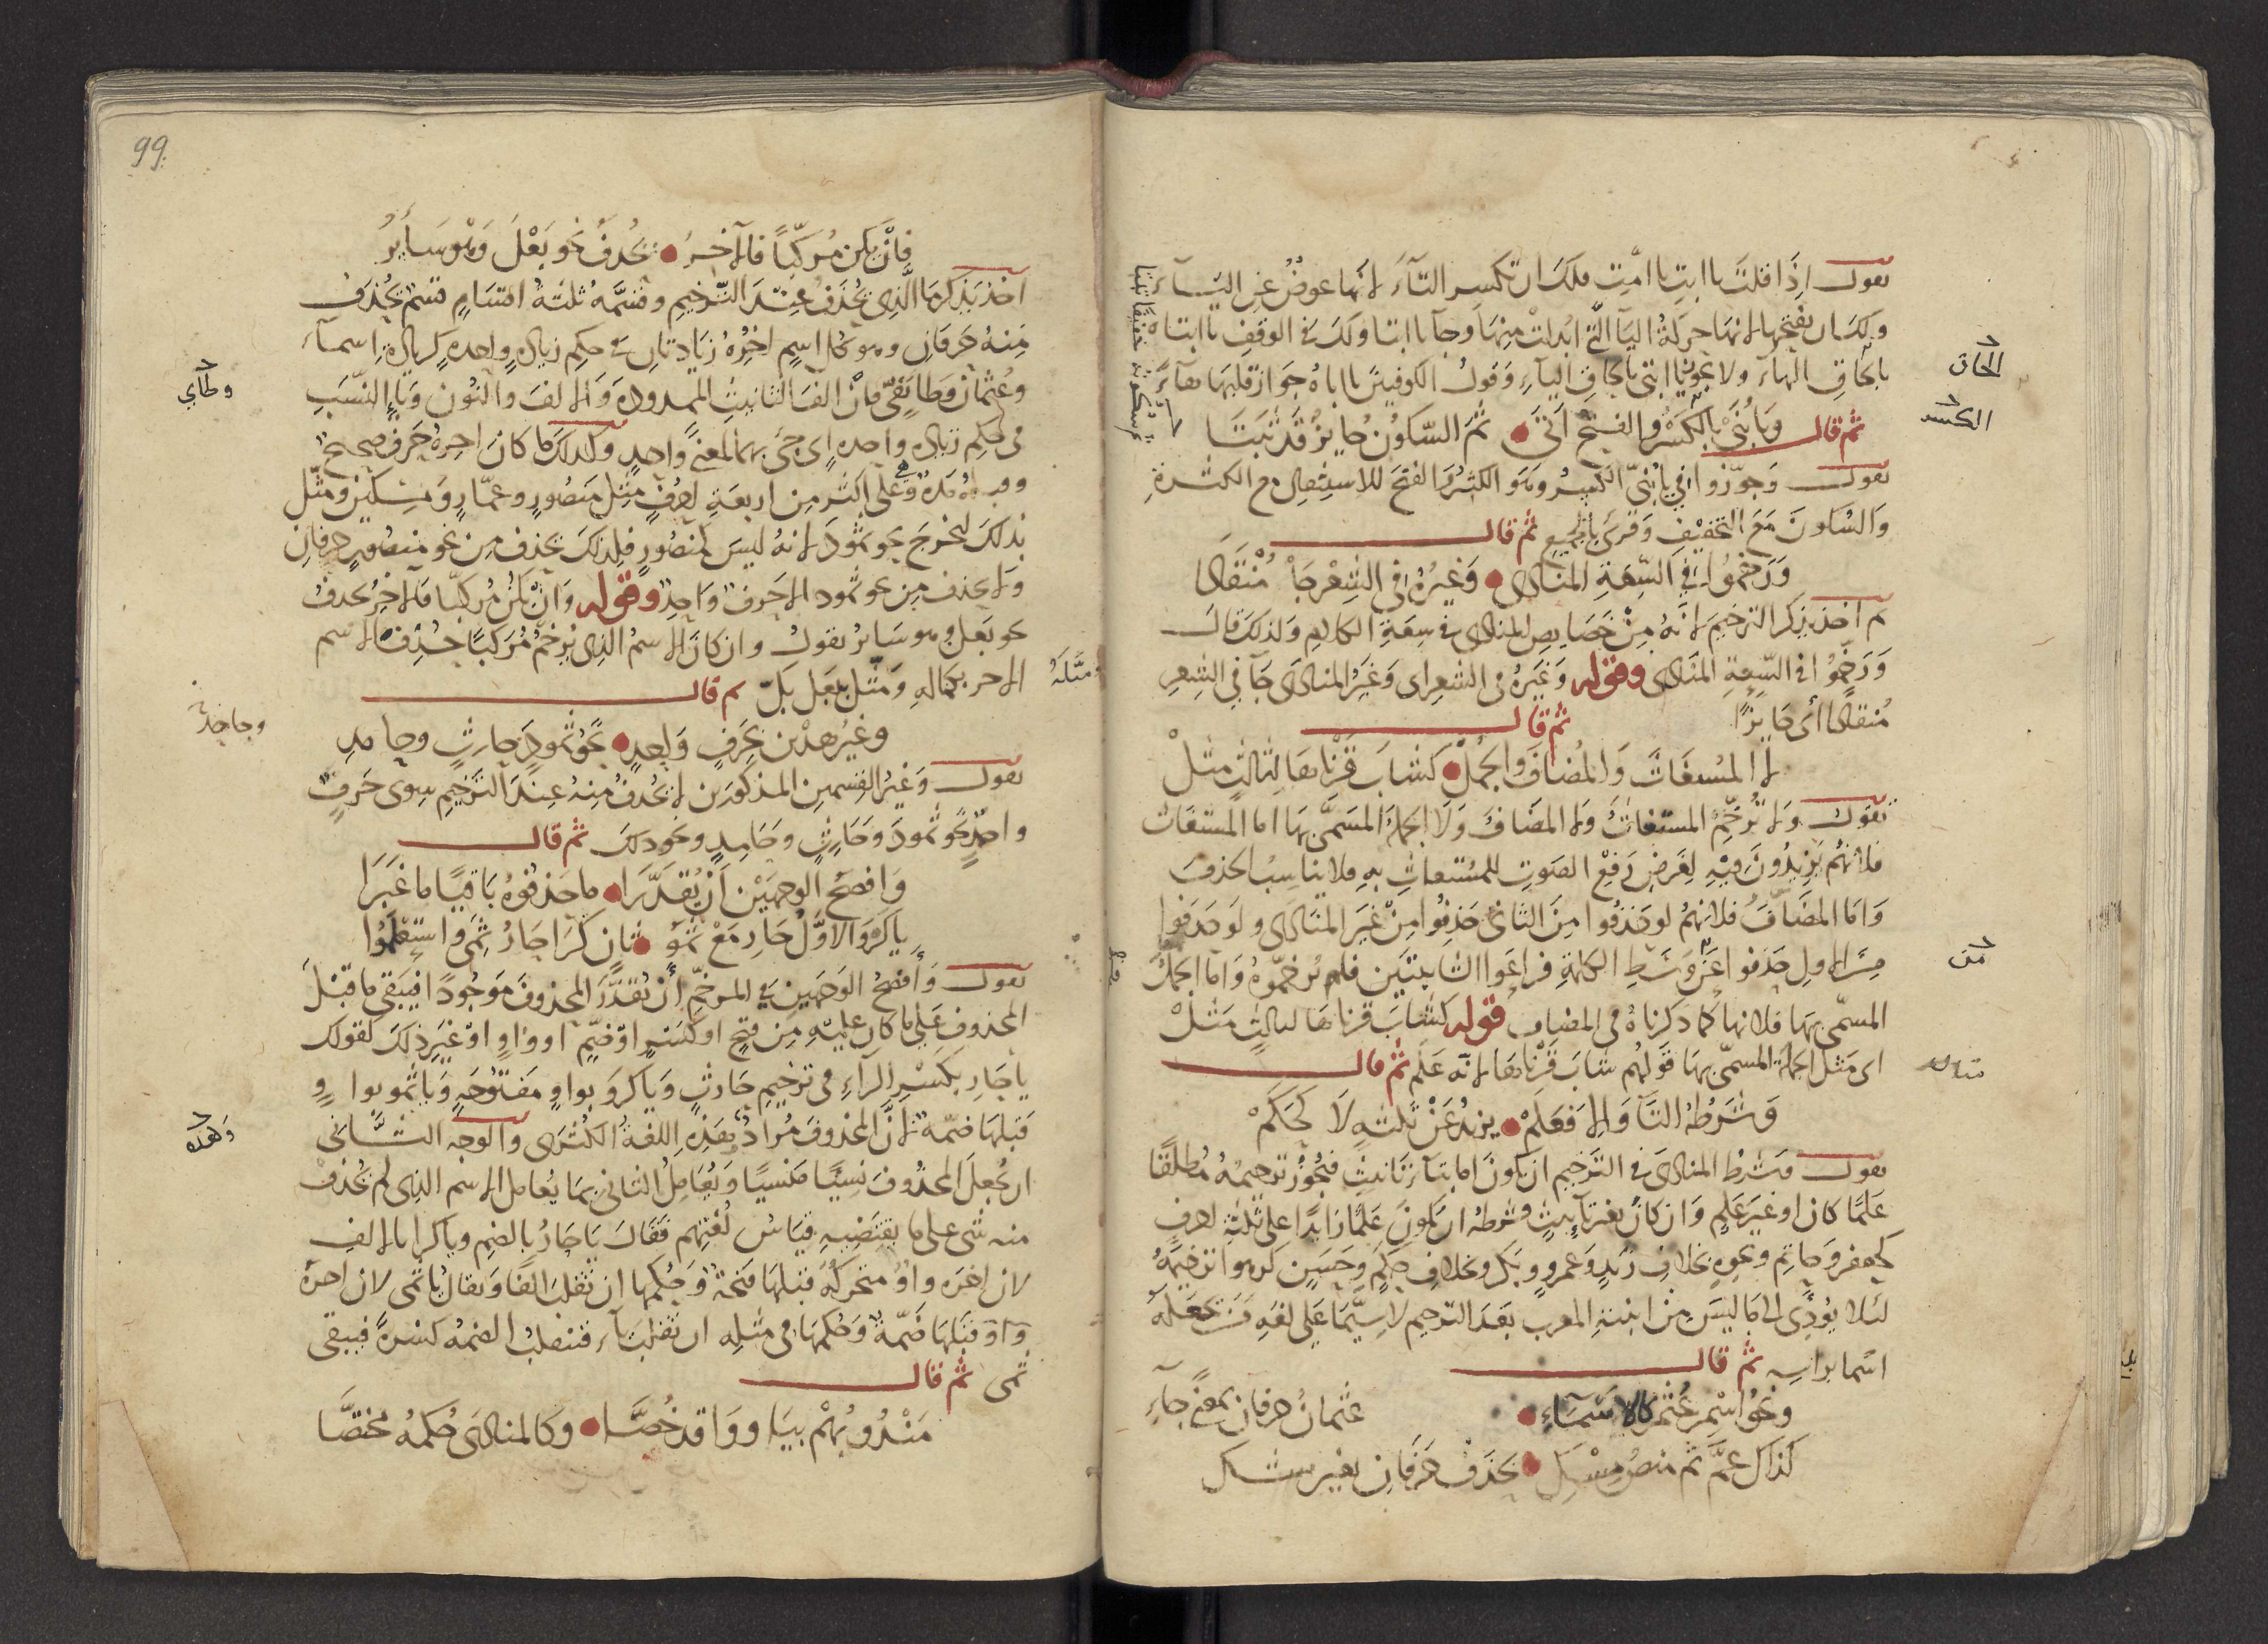 يقول اذا قلت يا ابت يا امت فلك ان تكسر التاء لانها عوض عن الياء
ولك ان تفتحها لانها حركة الياء التي ابدلت منها وجا يا ابتا ولك في الوقف يا ابتاه
بالحاق الهاء ولا يجوز يا ابتي بالحاق الياء وقول الكوفيين يا اباه جواز قلبها هاء
الحاق
ثم قال ويا بني بالكسر والفتح اتى ثم السكون جايز قد ثبتا
الكسر
يقول وجوزوا في يا بني الكسر وهو الكثير والفتح للاستثقال مع الكثرة
والسكون مع التخفيف وقرئ بالجميع ثم قال
ورخموا في السعة المنادى وغيره في الشعر جا منقادا
ثم اخذ يذكر الترخيم لانه من خصايص المنادى في سعة الكلام ولذلك قال
ورخموا في السعة المنادى وقوله وغيره في الشعر اي وغير المنادى جا في الشعر
منقادا أي جايزا ثم قال
لا المستغاث والمضاف والجمل كشاب قرناها لثالث مثل
يقول ولا ترخم المستغاث ولا المضاف ولا الجملة المسمى بها اما المستغاث
فلانهم يزيدون فيه لغرض رفع الصوت للمستغاث به فلا يناسب الحذف
واما المضاف فلانهم لو حذفوا من الثاني حذفوا من غير المنادى ولو حذفوا
من الاول حذفوا عن وسط الكلمة فراعوا الشائبتين فلم يرخموه واما الجمل
من
المسمى بها فلانها كما ذكرناه في المضاف قوله كشاب قرناها لثالث مثل
اي مثل الجملة المسمى بها قولهم شاب قرناها لانه علم ثم قال
وشرطه التا والا فعلم يزيد عن ثلثة لا كحكم
يقول وشرط المنادى في الترخيم ان يكون اما بتاء تانيث فيجوز ترخيمه مطلقا
علما كان او غير علم وان كان بغير تانيث فشرطه ان يكون علما زايدا على ثلثة احرف
كجعفر وحاتم ونحوه بخلاف زيد وعمرو وبكر وبخلاف حكم وحسن كرهوا ترخيمه
لئلا يؤدي الى ما ليس من ابنية المعرب بعد الترخيم لا سيما على لغة من يجعله
اسما براسه ثم قال
ونحو اسم عثم كالاسماء عثمان حرفان بمعنى جاء
كذاك عم ثم منص مسك بحذف حرفان بغير شك
99
فإن يكن مركبا فالآخر يحذف نحو بعل وهو سائر
اخذ يذكر ما الذي يحذف عند الترخيم وقسمه ثلثة اقسام قسم يحذف
منه حرفان وهو كل اسم اخره زيادتان في حكم زيادة واحدة كزيادة اسماء
وعثمان وطايفي فان الف التانيث الممدودة والالف والنون وياء النسب
وطاي
في حكم زيادة واحدة اي جئ بهما لمعنى واحد وكذلك ما كان اخره حرف صحيح
وقبله مدة وهي على اكثر من اربعة احرف مثل منصور وعمار ومسكين ومثل
بذلك ليخرج نحو ثمود لانه ليس كمنصور فلذلك يحذف من نحو منصور حرفان
ولا يحذف من نحو ثمود الا حرف واحد وقوله وان يكن مركبا فالاخر يحذف
نحو بعل وهو ساير يقول وان كان الاسم الذي يرخم مركبا حذف الاسم
الاخر بكماله ومثل ببعل بك ثم قال
مثله
وغير هذين بحرف واحد نحو ثمود حارث وجامد
يقول وغير القسمين المذكورين لا يحذف منه عند الترخيم سوى حرف
واحد نحو ثمود وحارث وحامد ونحو ذلك ثم قال
وافصح الوجهين أن يقدرا ما حذفوه باقيا ما غيرا
يا كرو الاول حار مع ثمو ثان كرا حار ثمي واستعلموا
يقول وأفصح الوجهين في المرخم أن يقدر المحذوف موجودا فيبقى ما قبل
المحذوف على ما كان عليه من فتح او كسر او ضم او واو او غير ذلك كقولك
يا حار بكسر الراء في ترخيم حارث ويا كرو بواو مفتوحة ويا ثمو بواو
قبلها ضمة لان المحذوف مراد بهذه اللغة الكثرى والوجه الثاني
وهذه
ان يجعل المحذوف نسيا منسيا ويعامل الثاني بما يعامل الاسم الذي لم يحذف
منه شى على ما يقتضيه قياس لغتهم فقال يا حار بالضم ويا كرا بالالف
لان اخره واو متحركة قبلها فتحة وحكمها ان تقلب الفا ويقال يا ثمى لان اخره
واو قبلها ضمة وحكمها في مثله ان تقلب ياء فتنقلب الضمة كسرة فيبقى
ثمى ثم قال
مندوبهم بيا ووا قد خصا وكالمنادى حكمه مختصا